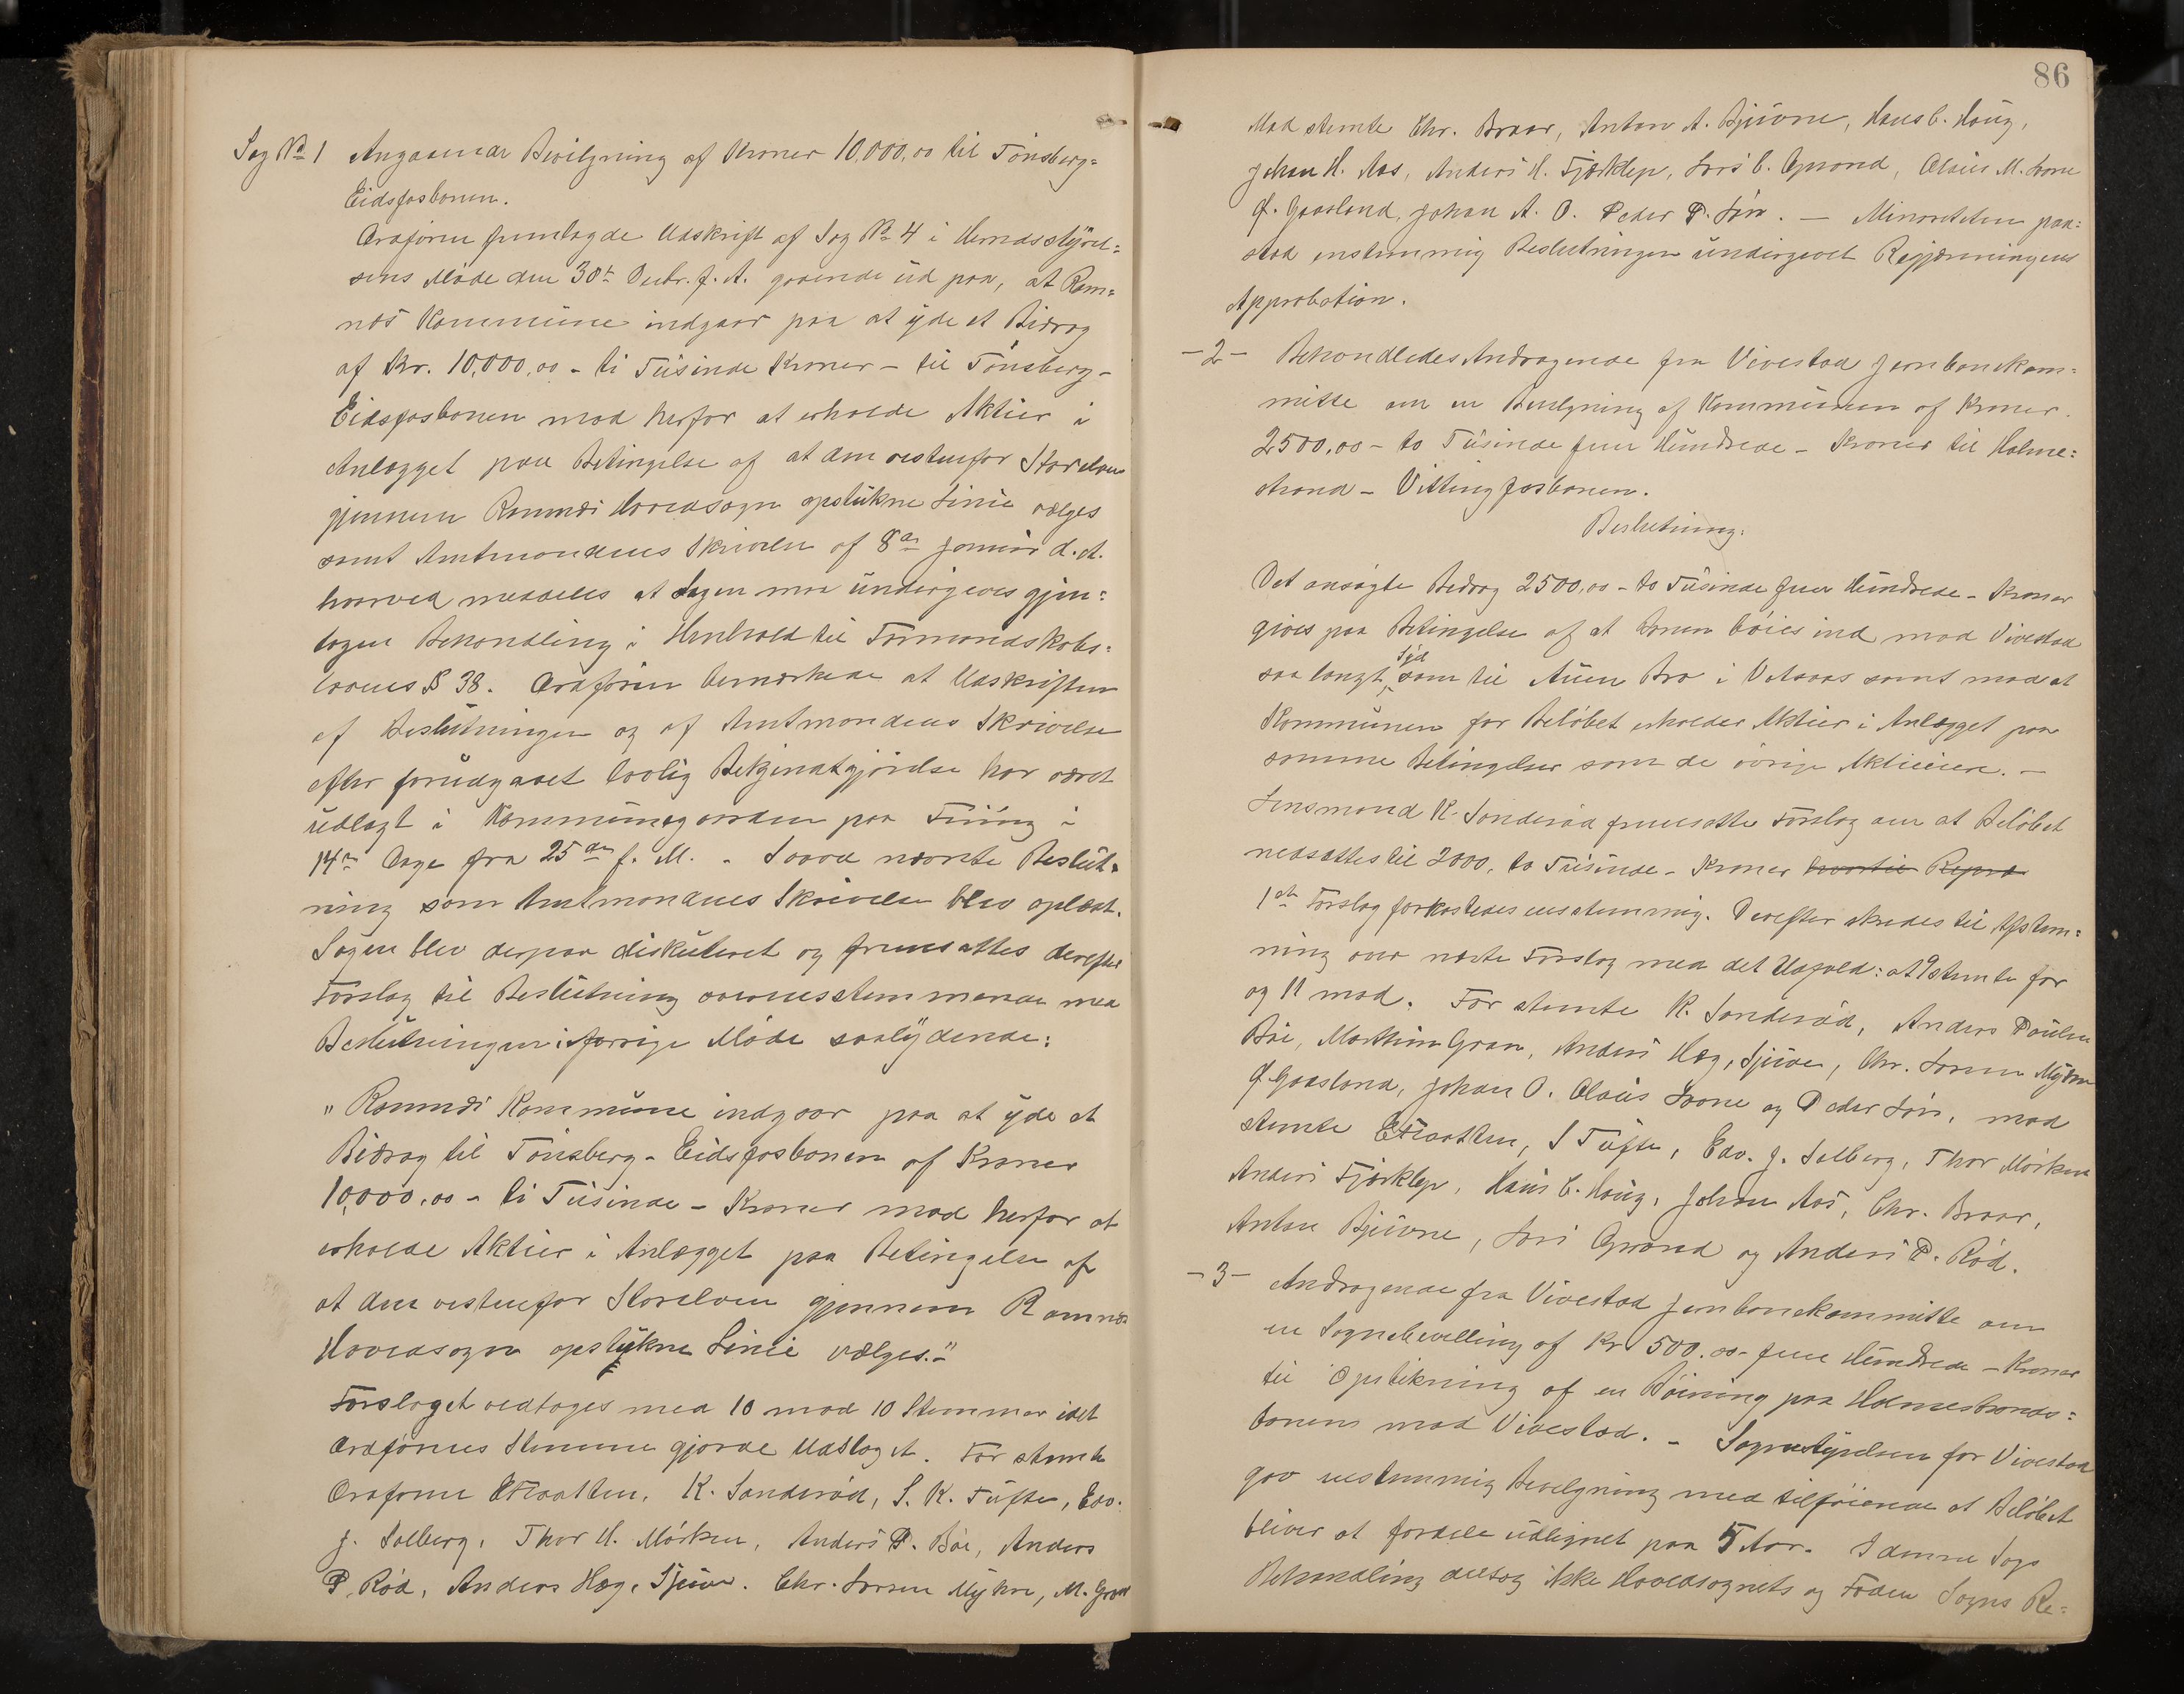 Sag No 1 Angaaende Bevilgning af Kroner 10,000,00 til Tönsberg=
Eidsfosbanen.
Ordfören fremlagde Udskrift af Sag No 4 i Herredsstyrel=
sens Möde den 30te Decbr. f. A. gaaende ud paa, at Ram=
næs Kommune indgaar paa at yde et Bidrag
af Kr. 10,000,00 - ti Tusinde Kroner - til Tönsberg-
Eidsfosbanen mod herfor at erholde Aktier i
Anlægget paa Betingelse af at den vestenfor Storelven
gjennem Ramnæs Hovedsogn opstukne Linie vælges
samt Amtmandens Skrivelse af 8de Januar d. A.
hvorved meddeles at Sagen maa undergives gjen=
tagen Behandling i Henhold til Formandskabs=
lovens § 38. Ordföreren bemærkede at Udskriften
af Beslutningen og af Amtmandens Skrivelse
efter forudgaaet lovlig Bekjendtgjörelse har været
udlagt i Kommunegaarden paa Fiung i
14n Dage fra 25de f. M. - Saavel nævnte Beslut=
ning som Amtmandens Skrivelse blev oplæst.
Sagen blev derpaa diskuteret og fremsattes derefter
Forslag til Beslutning overensstemmende med
Beslutningen i forrige Möde saalydende:
"Ramnæs Kommune indgaar paa at yde et
Bidrag til Tönsberg-Eidsfosbanen af Kroner
10,000,00 - ti Tusinde - Kroner mod herfor at
erholde Aktier i Anlægget paa Betingelse af
at den vestenfor Storelven gjennem Ramnæs
Hovedsogn opstukne Linie vælges."
Forslaget vedtoges med 10 mod 10 Stemmer idet
Ordförerens Stemme gjorde Udslaget. For stemte
Ordförer K. Sanderöd, S. K. Tufte, Edv.
J. Solberg, Thor H. Mörken, Anders P. Böe, Anders
P. Röd, Anders Hæg, Sjuve. Chr. Larsen Myhre, M. Gran
86
Mod stemte Chr. Braar, Anton A. Bjuvne, Hans C. Houg,
Johan H. Aas, Anders H. Fjærklep, Lars C. Gprond, Olaus M. Loone
Gaasland, Johan A. O. Peder P. Lin. — Minoriteten paa=
stod enstemmig Beslutningen undergivet Regjeringens
Approbation.
-2- Behandledes Andragende fra Vivestad Jernbanekom=
mitte om en Bevilgning af Kommunen af Kroner
2500,00 - to Tusinde fem Hundrede - Kroner til Holme=
strand - Vittingfosbanen.
Beslutning:
Det ansögte Bidrag 2500,00 - to Tusinde fem Hundrede - Kroner
gives paa Betingelse af at Banen böies ind mod Vivestad
saa langt Syd som til Auen Bro i Vetaas samt mod at
Kommunen for Belöbet erholder Aktier i Anlægget paa
samme Betingelser som de övrige Aktieeiere. —
Lensmand K. Sanderöd fremsatte Forslag om at Belöbet
nedsættes til 2000, to Tusinde - Kroner hvortil Repræ
1ste Forslag forkastedes enstemmig. Derefter skredes til Afstem=
ning over næste Forslag med det Udfald: at 9 stemte for
og 11 mod. For stemte K. Sanderöd, Anders Paulsen
Böe, Marthin Gran, Anders Hæg, Sjuve, Chr. Larsen Myhre
Gaasland, Johan O. Olaus Loone og Peder Lin, mod
stemte S Tufte, Edv. J. Solberg, Thor Mörken
Anders Fjærklep, Hans C. Houg, Johan Aas, Chr. Braar,
Anton Bjuvne, Lars Gprond og Anders P. Röd.
-3- Andragende fra Vivestad Jernbanekommitte om
en Sognebevilling af Kr 500.00 - fem Hundrede - Kroner
til Opstikning af en Böining paa Holmestrands=
banen mod Vivestad. - Sognestyrelsen for Vivestad
gav enstemmig Bevilgning med tilföiende at Belöbet
bliver at fordele udlignet paa 5 Aar. I denne Sags
Behandling deltog ikke Hovedsognets og Fodens Sogns Re=